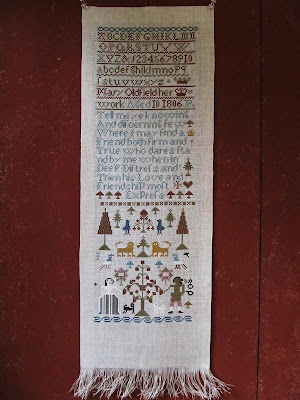 ABCDEFGHIKLM
OPQRSTUVW
XYZ&12345678910
abcdefghiklmnopq
rstuvwxyz
Mary Oldfield her
work Aged 10 1806
Tell me ye knowing
And discerning few
Where I may find a
Friend both Firm and
True who dares sta
nd by me when in
Deep Distress and
Then his Love and
Friendship most
Express